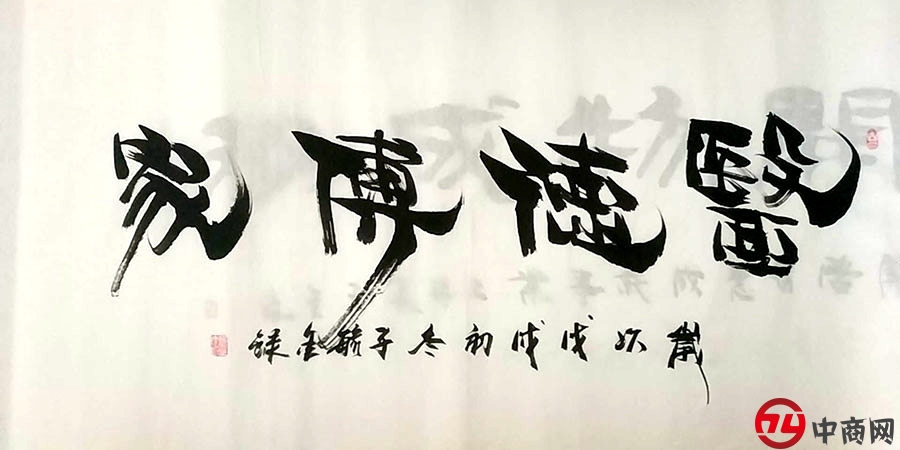 醫德傳家
歲次戊戌初冬子毓金錄
中商网